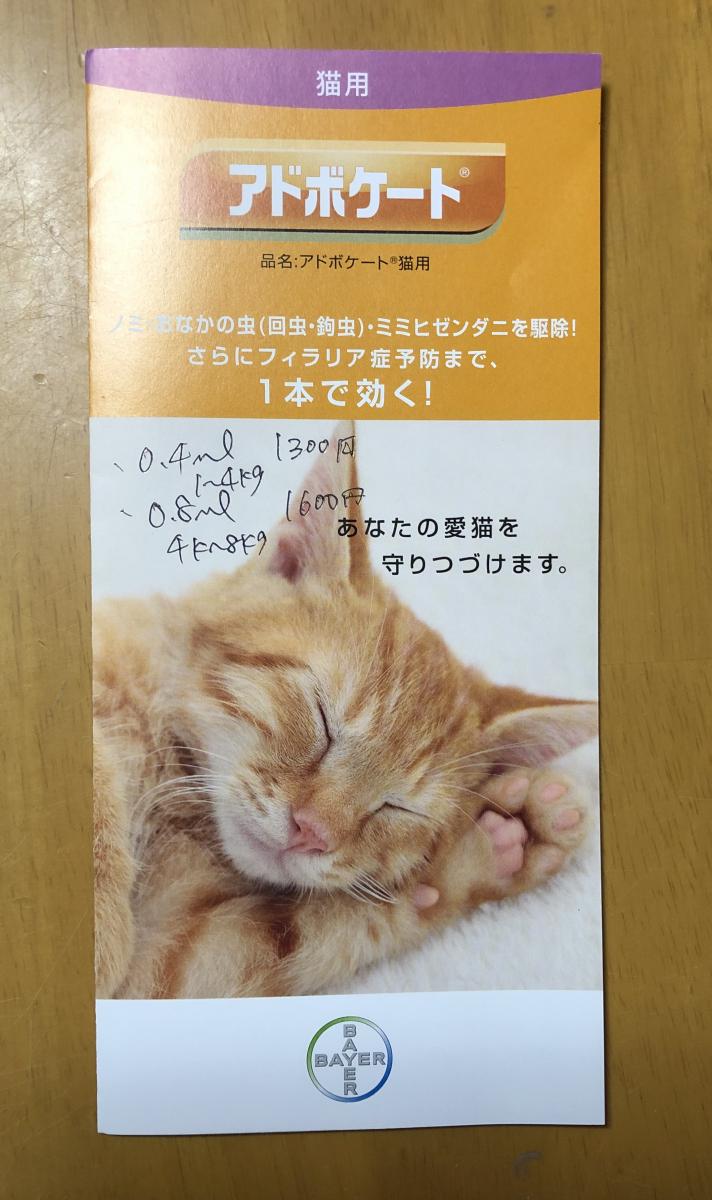 猫用
アドボケート®
品名:アドボケート®猫用
ノミ・おなかの虫(回虫・鉤虫)・ミミヒゼンダニを駆除!
さらにフィラリア症予防まで、
1本で効く!
、0.4ml 1300円
1~4kg
、0.8ml 1600円
4k~8kg
あなたの愛猫を
守りつづけます。
BAYER
BAYER